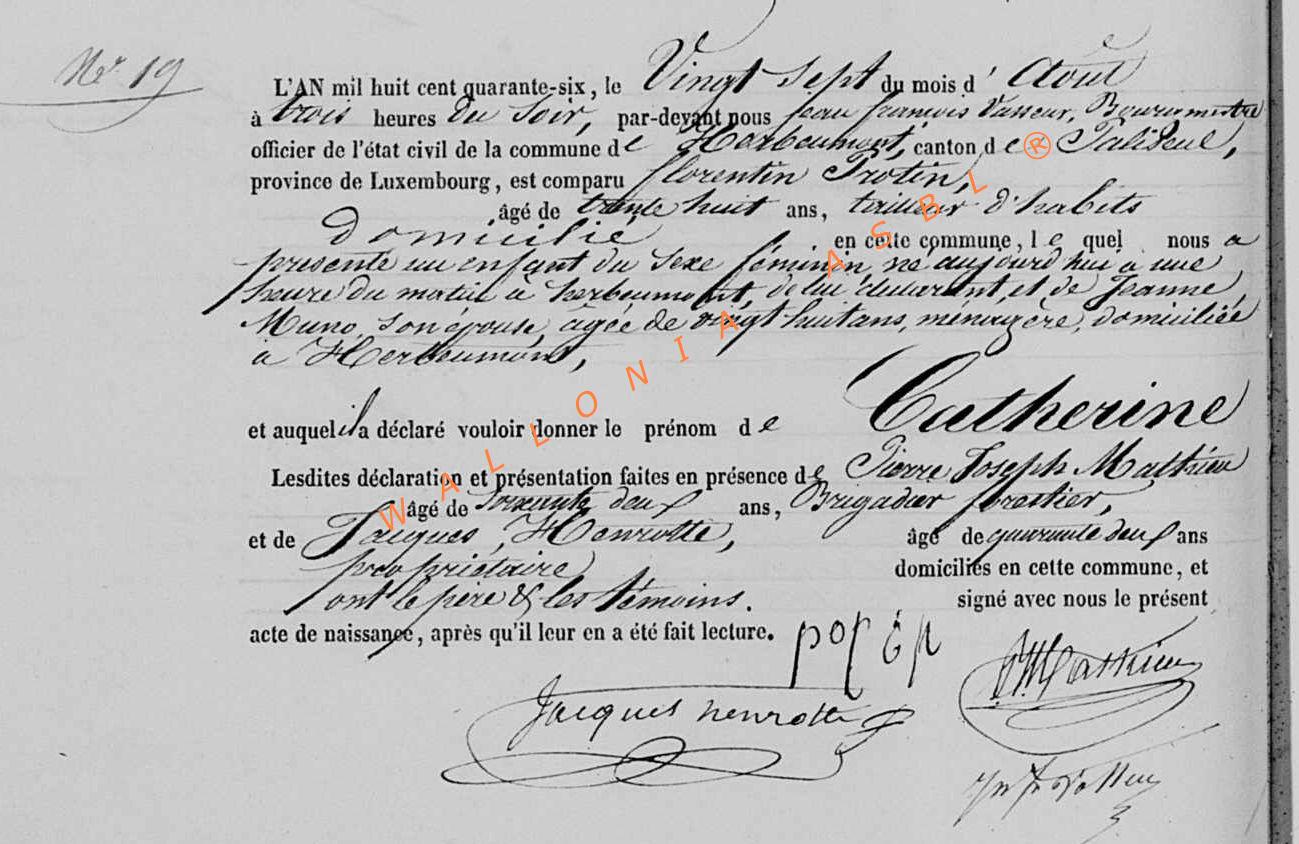 No. 19
L'AN mil huit cent quarante-six, le Vingt sept du mois d' Août
à trois heures du soir, par-devant nous jean françois Vasseur, Bourgmestre
officier de l'état civil de la commune de Herbeumont, canton de Paliseul,
province de Luxembourg, est comparu florentin Protin,
âgé de trente huit ans, tailleur d'habits
domicilié en cette commune, le quel nous a
présenté un enfant du sexe féminin, né aujourd'hui à une
heure du matin à herbeumont, de lui déclarant, et de Jeanne
Muno, son épouse, âgée de vingt huit ans, ménagère, domiciliée
à Herbeumont,
et auquel il a déclaré vouloir donner le prénom de Catherine
Lesdites déclaration et présentation faites en présence de Pierre Joseph Mathieu
âgé de soixante deux ans, Brigadier forestier,
et de Jacques Henrotte, âgé de quarante deux ans
propriétaire domiciliés en cette commune, et
ont le père & les témoins. signé avec nous le présent
acte de naissance, après qu'il leur en a été fait lecture.
Mathieu
Jacques henrotte
WALLONIA ASBL ®